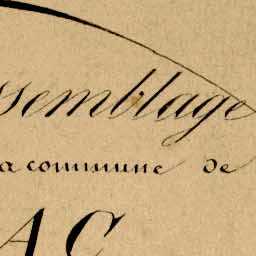 ssemblage
a commune de
AC